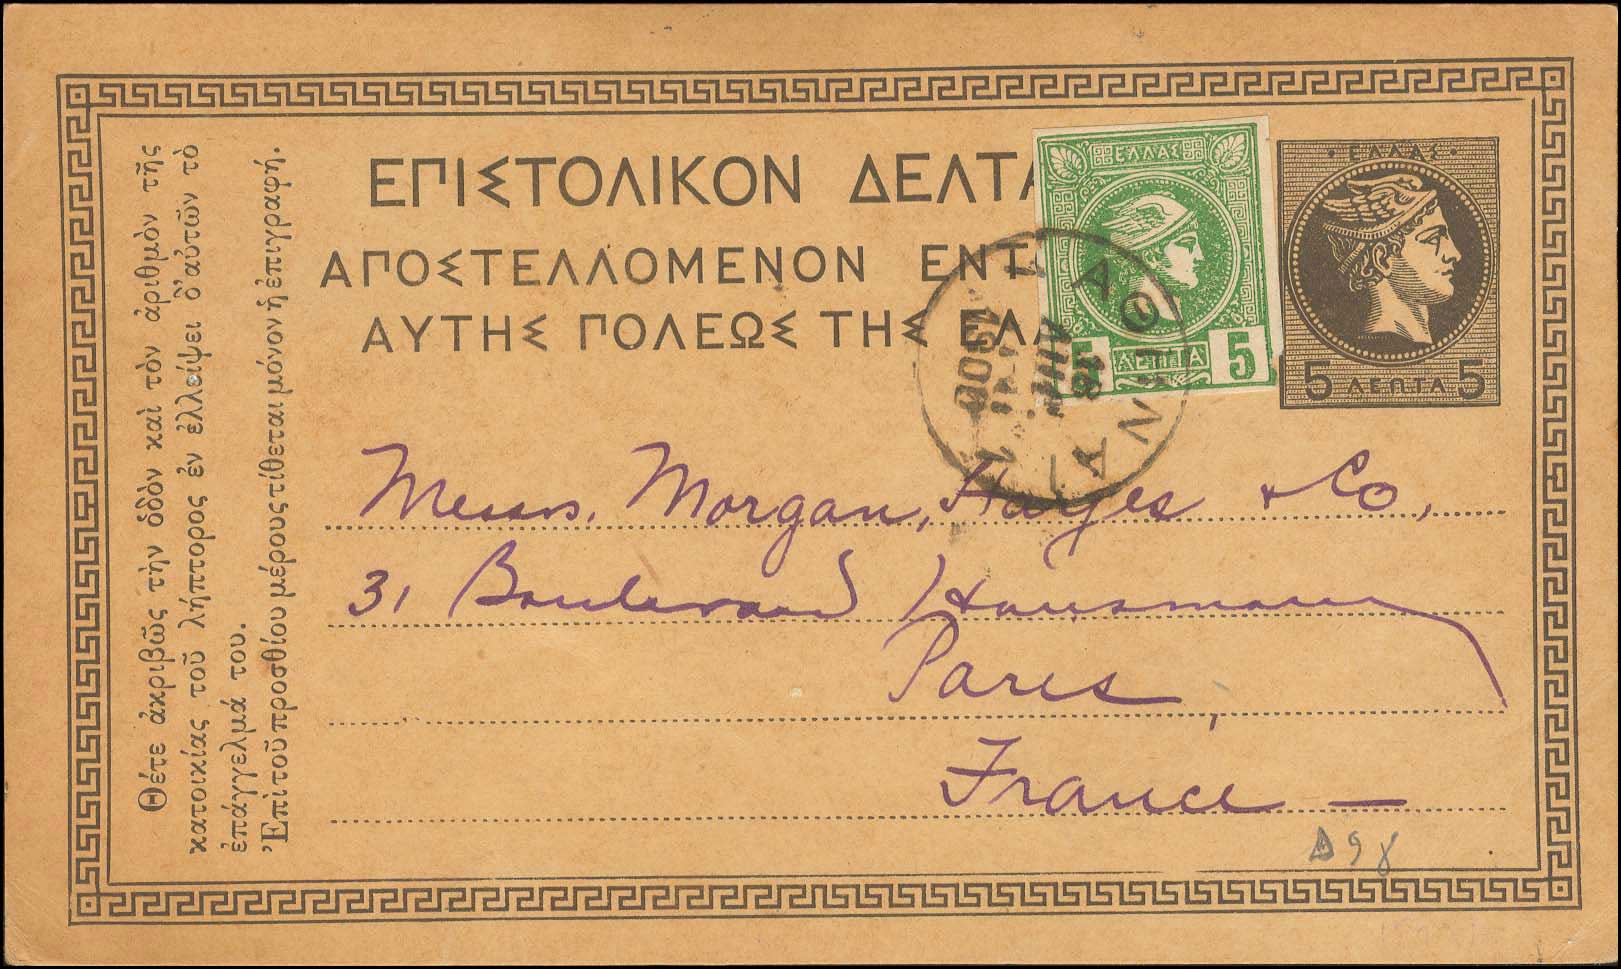 ΕΠΙΣΤΟΛΙΚΟΝ ΔΕΛΤΑ
ΑΠΟΣΤΕΛΛΟΜΕΝΟΝ ΕΝΤ
ΑΥΤΗΣ ΠΟΛΕΩΣ ΤΗΣ ΕΛΛ
ΕΛΛΑΣ
5 ΛΕΠΤΑ 5
ΕΛΛΑΣ
5 ΛΕΠΤΑ 5
ΑΘΗΝΑΙ
1
16
ΑΠΡ.
1900
Messrs. Morgan, Hayes & Co,
31 Boulevard Hausmann
Paris,
France —
Δ9γ
Θέτε ἀκριβῶς τὴν ὁδὸν καὶ τὸν ἀριθμὸν τῆς
κατοικίας τοῦ λήπτορος ἐν ἐλλείψει δ'αὐτῶν τὸ
ἐπάγγελμά του.
Ἐπὶ τοῦ προσθίου μέρους τίθεται μόνον ἡ ἐπιγραφή.